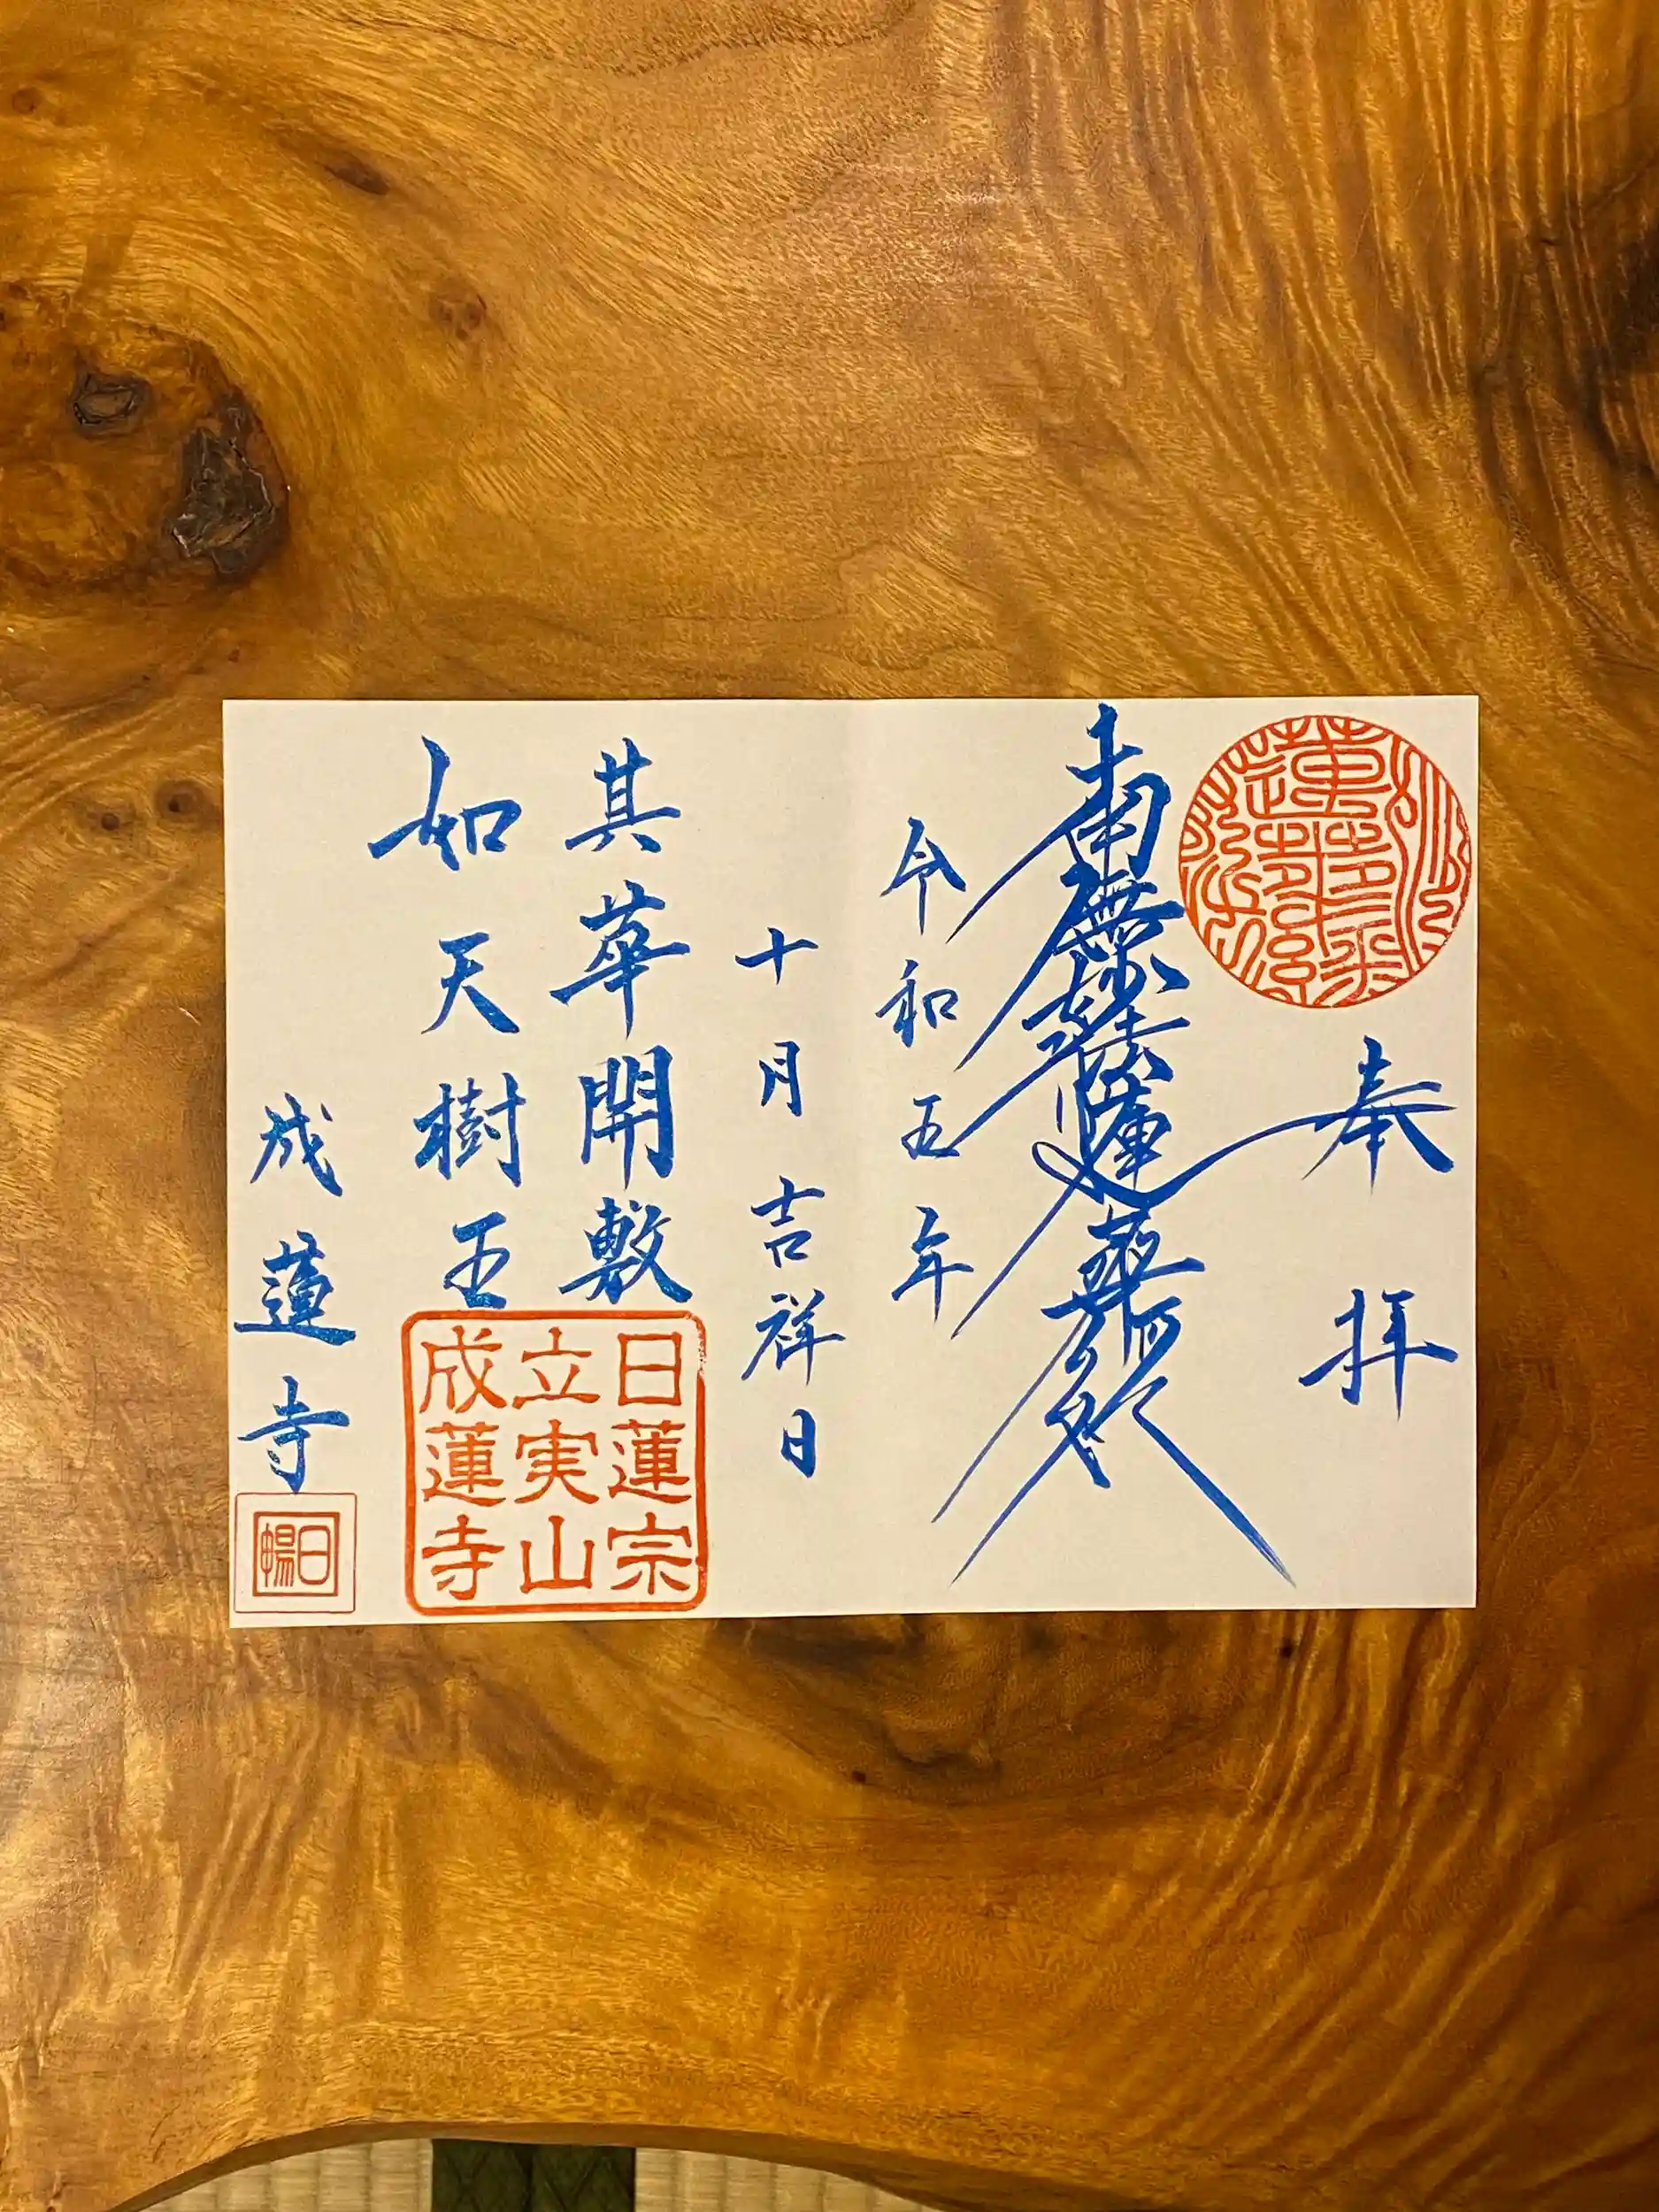 奉拝
南無妙法蓮華経
令和五年
十月吉祥日
其華開敷
如天樹王
日蓮宗
立実山
成蓮寺
成蓮寺
妙法
蓮華経
日暢